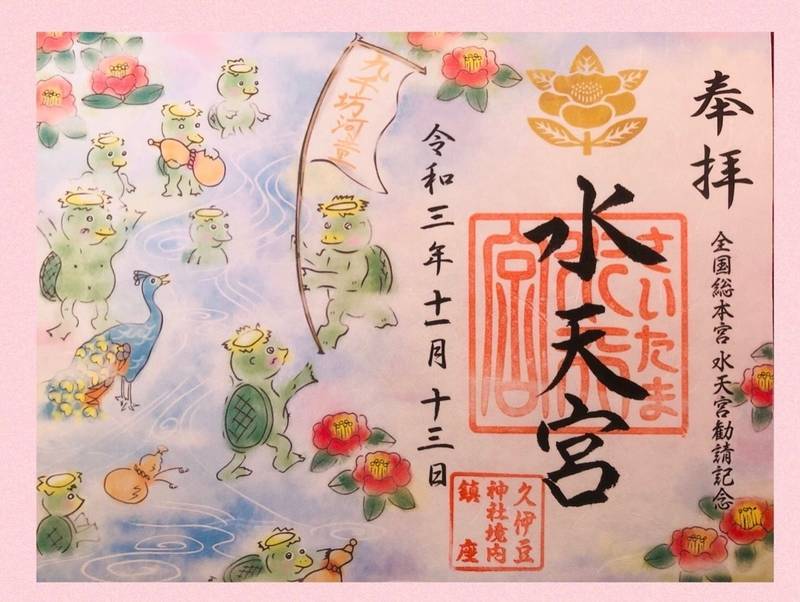 奉拝
全国総本宮 水天宮勧請記念
水天宮
さいたま
水天宮
久伊豆
神社境内
鎮座
令和三年十一月十三日
九千坊河童